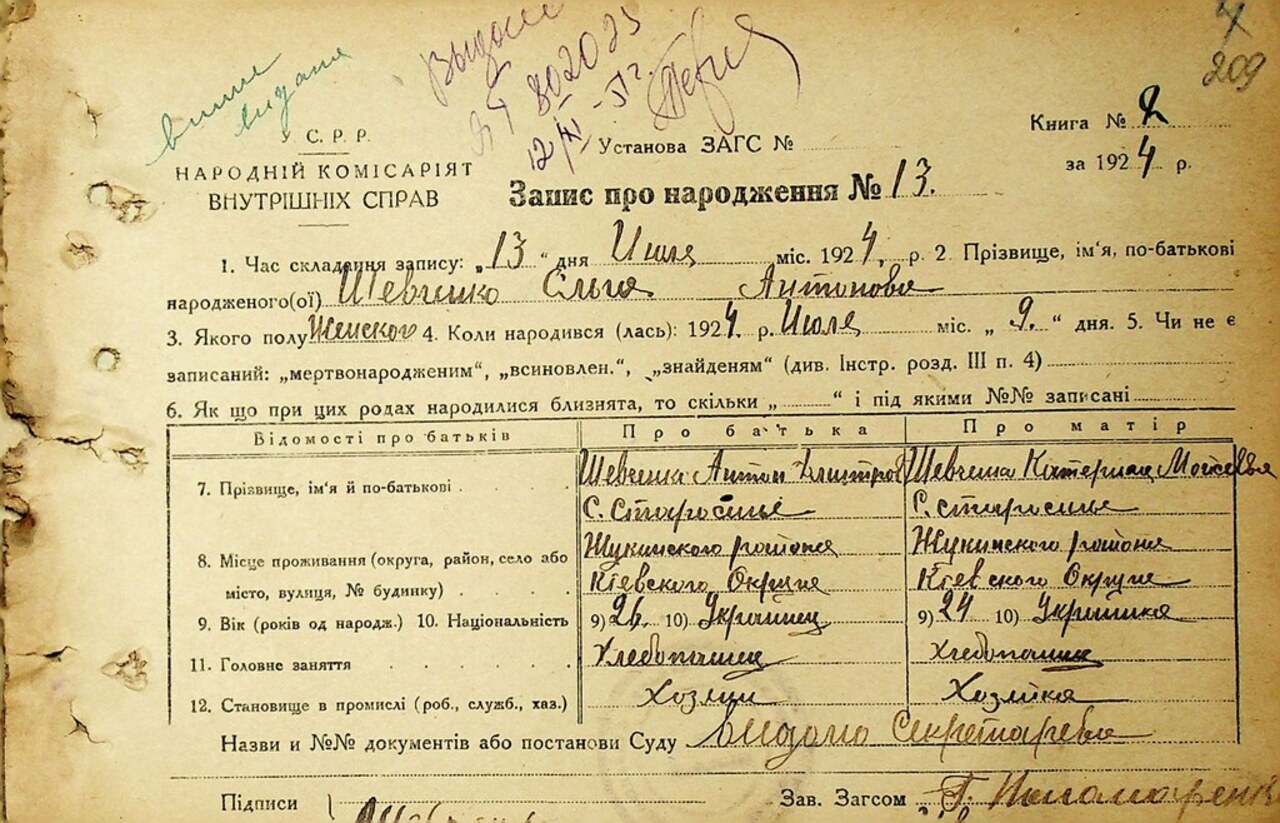 4
209
вище
видано
Выдано
ЯЧ 802025
12/XI-51г.
У. С. Р. Р.
НАРОДНІЙ КОМІСАРІЯТ
ВНУТРІШНІХ СПРАВ
Установа ЗАГС №
Книга № 2
за 1924 р.
Запис про народження № 13.
1. Час складення запису: „13“ дня Июля міс. 1924, р. 2. Прізвище, ім'я, по-батькові
народженого(ої) Шевченко Ольга Антонова
3. Якого полу Женского 4. Коли народився (лась): 1924. р. Июля міс. „9.“ дня. 5. Чи не є
записаний: „мертвонародженим“, „всиновлен.“, „знайденям“ (див. Інстр. розд. III п. 4)
6. Як що при цих родах народилися близнята, то скільки „ “ і під якими №№ записані
Відомості про батьків Про батька Про матір
7. Прізвище, ім'я й по-батькові Шевченко Антон Дмитров Шевченко Катерина Моисеевна
С. Старосілье С. Старосілье
8. Місце проживання (округа, район, село або Жукинского района Жукинского района
місто, вулиця, № будинку) Кіевского Округа Кіевского Округа
9. Вік (років од народж.) 10. Національність 9) 26. 10) Украинец 9) 24 10) Украинка
11. Головне заняття Хлебопашец Хлебопашец
12. Становище в промислі (роб., служб., хаз.) Хозяин Хозяйка
Назви и №№ документів або постанови Суду Видано Секретарева
Підписи Зав. Загсом Г. Пономаренко